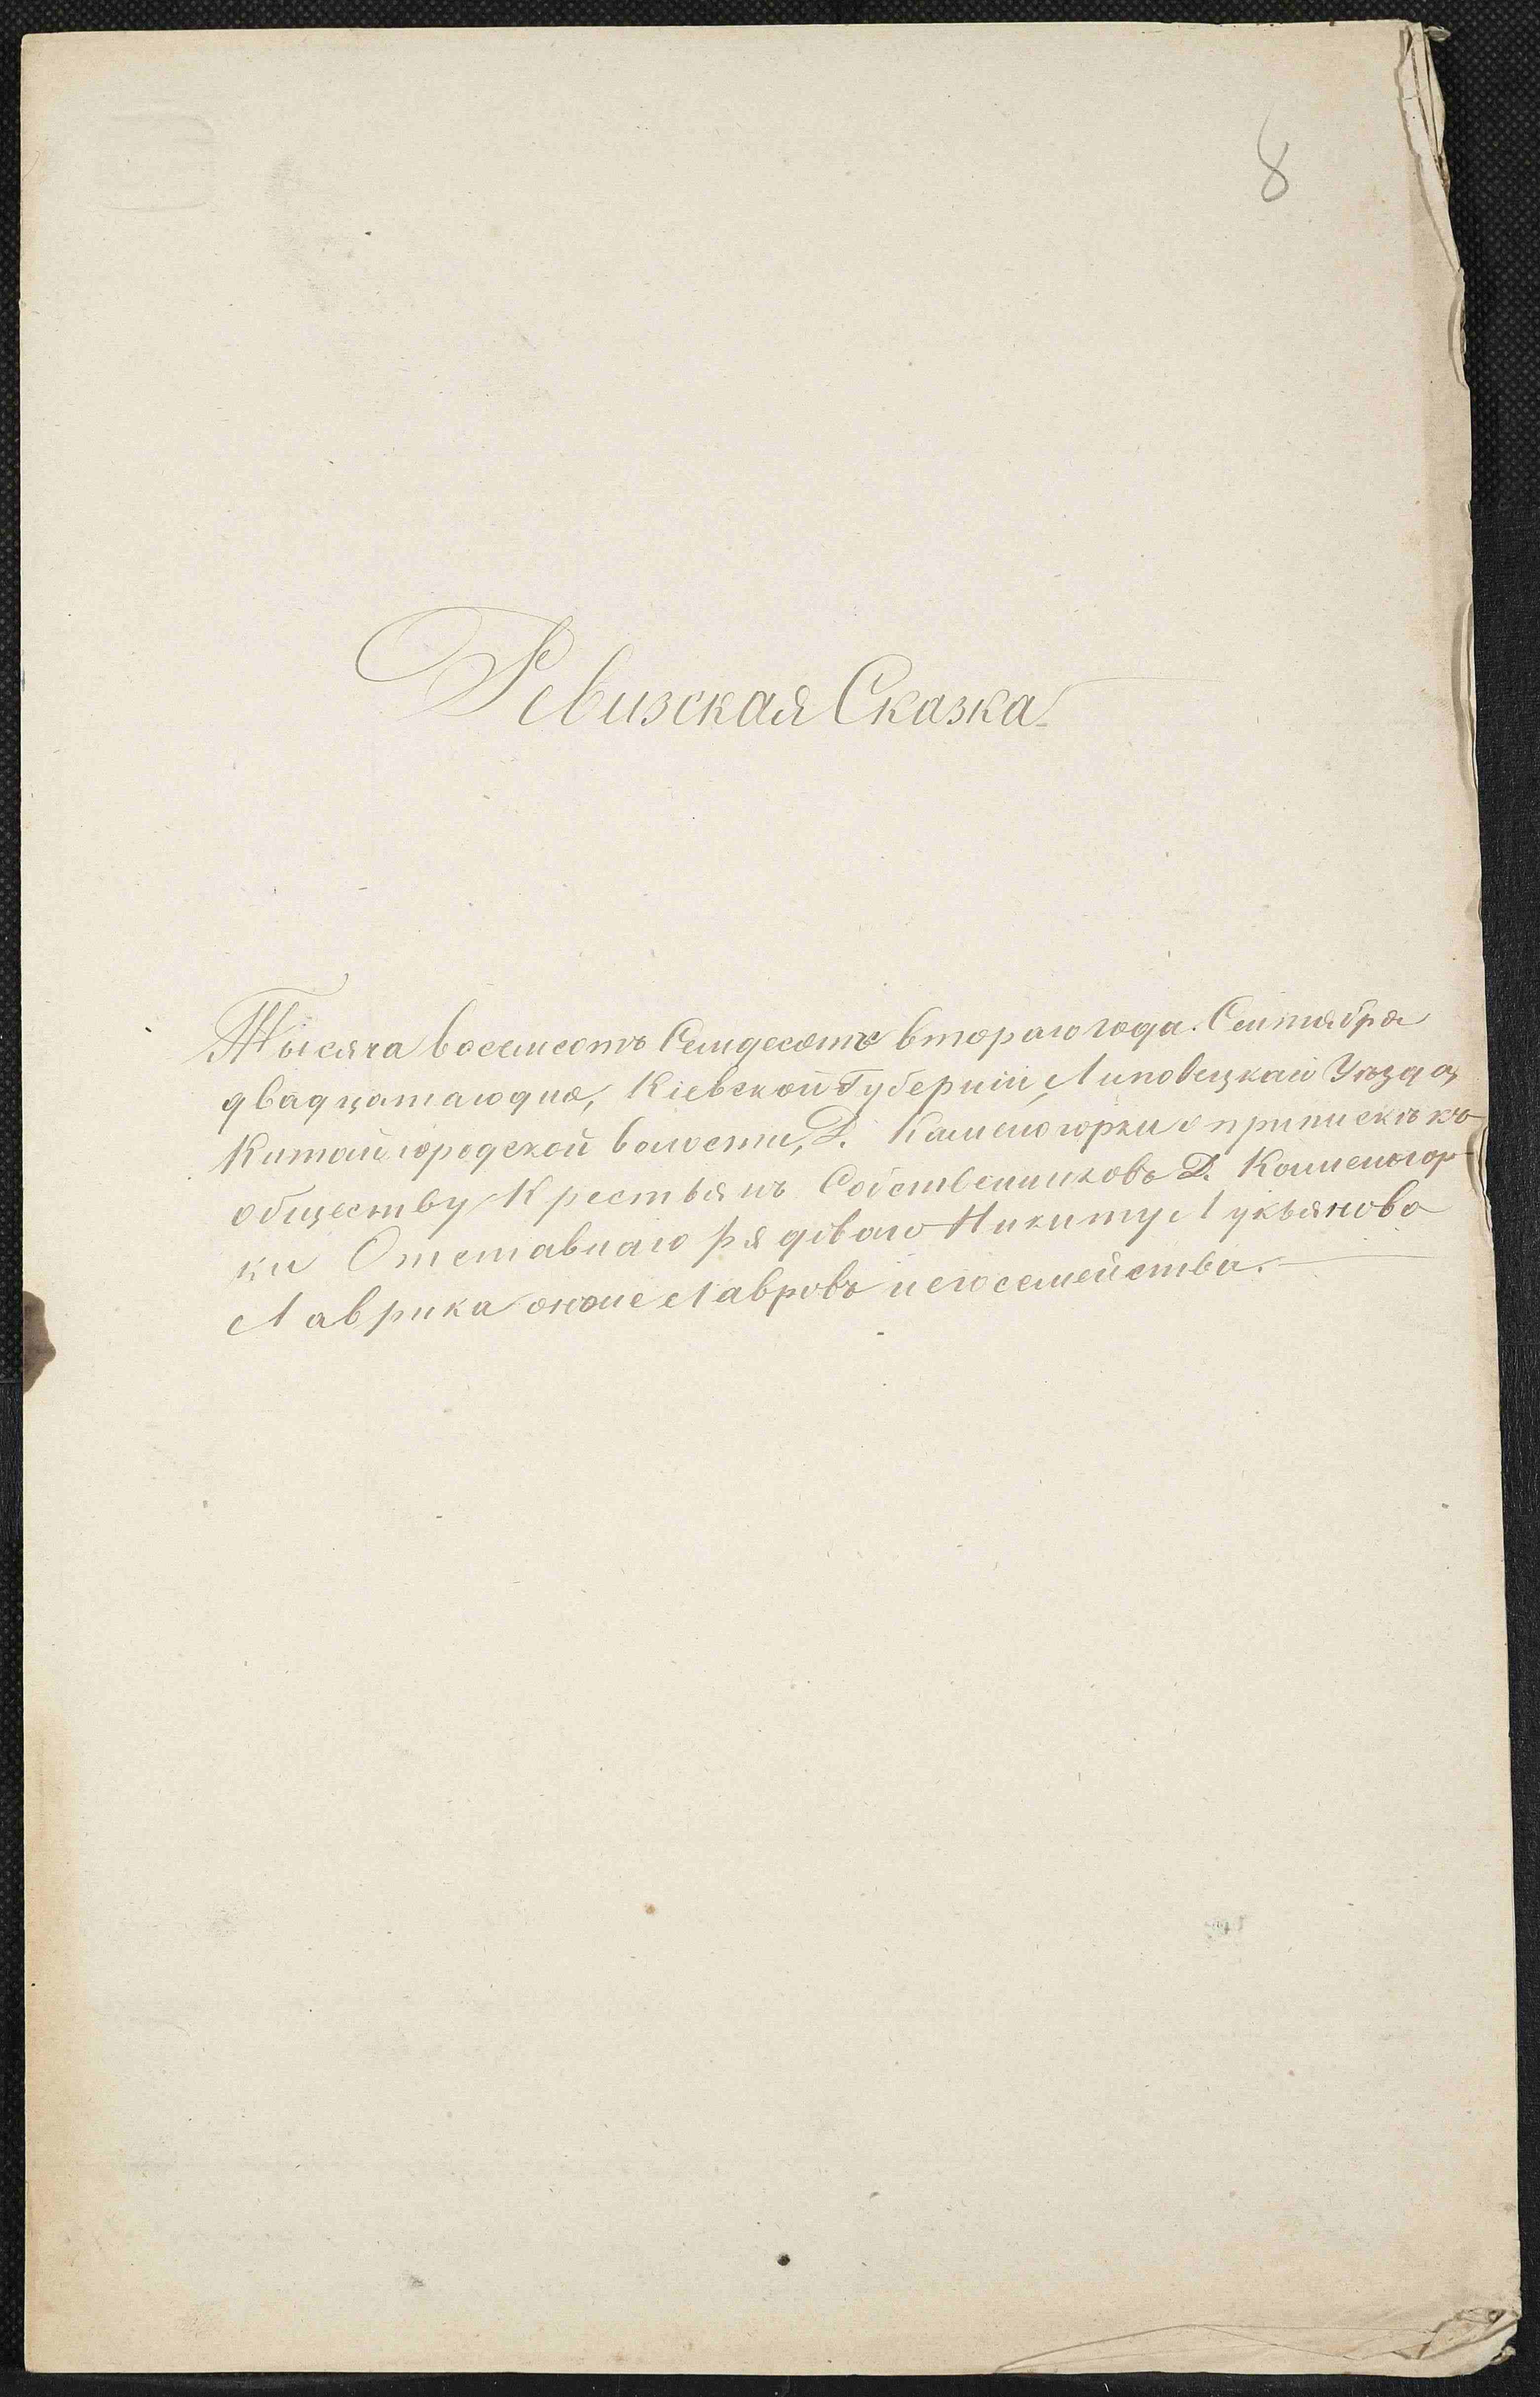 8
Ревизская Сказка
Тысяча восемсотъ Семдесятъ втораго года. Сентября
двадцатаго дня, Кіевской Губерніи, Липовецкаго Уѣзда,
Китайгородской волости, Д. Каменогорки о припискѣ къ
обществу Крестьянъ Собственниковъ Д. Каменогор-
ки Отставнаго рядоваго Никиту Лукьянова
Лаврика онже Лавровъ и его семейства.